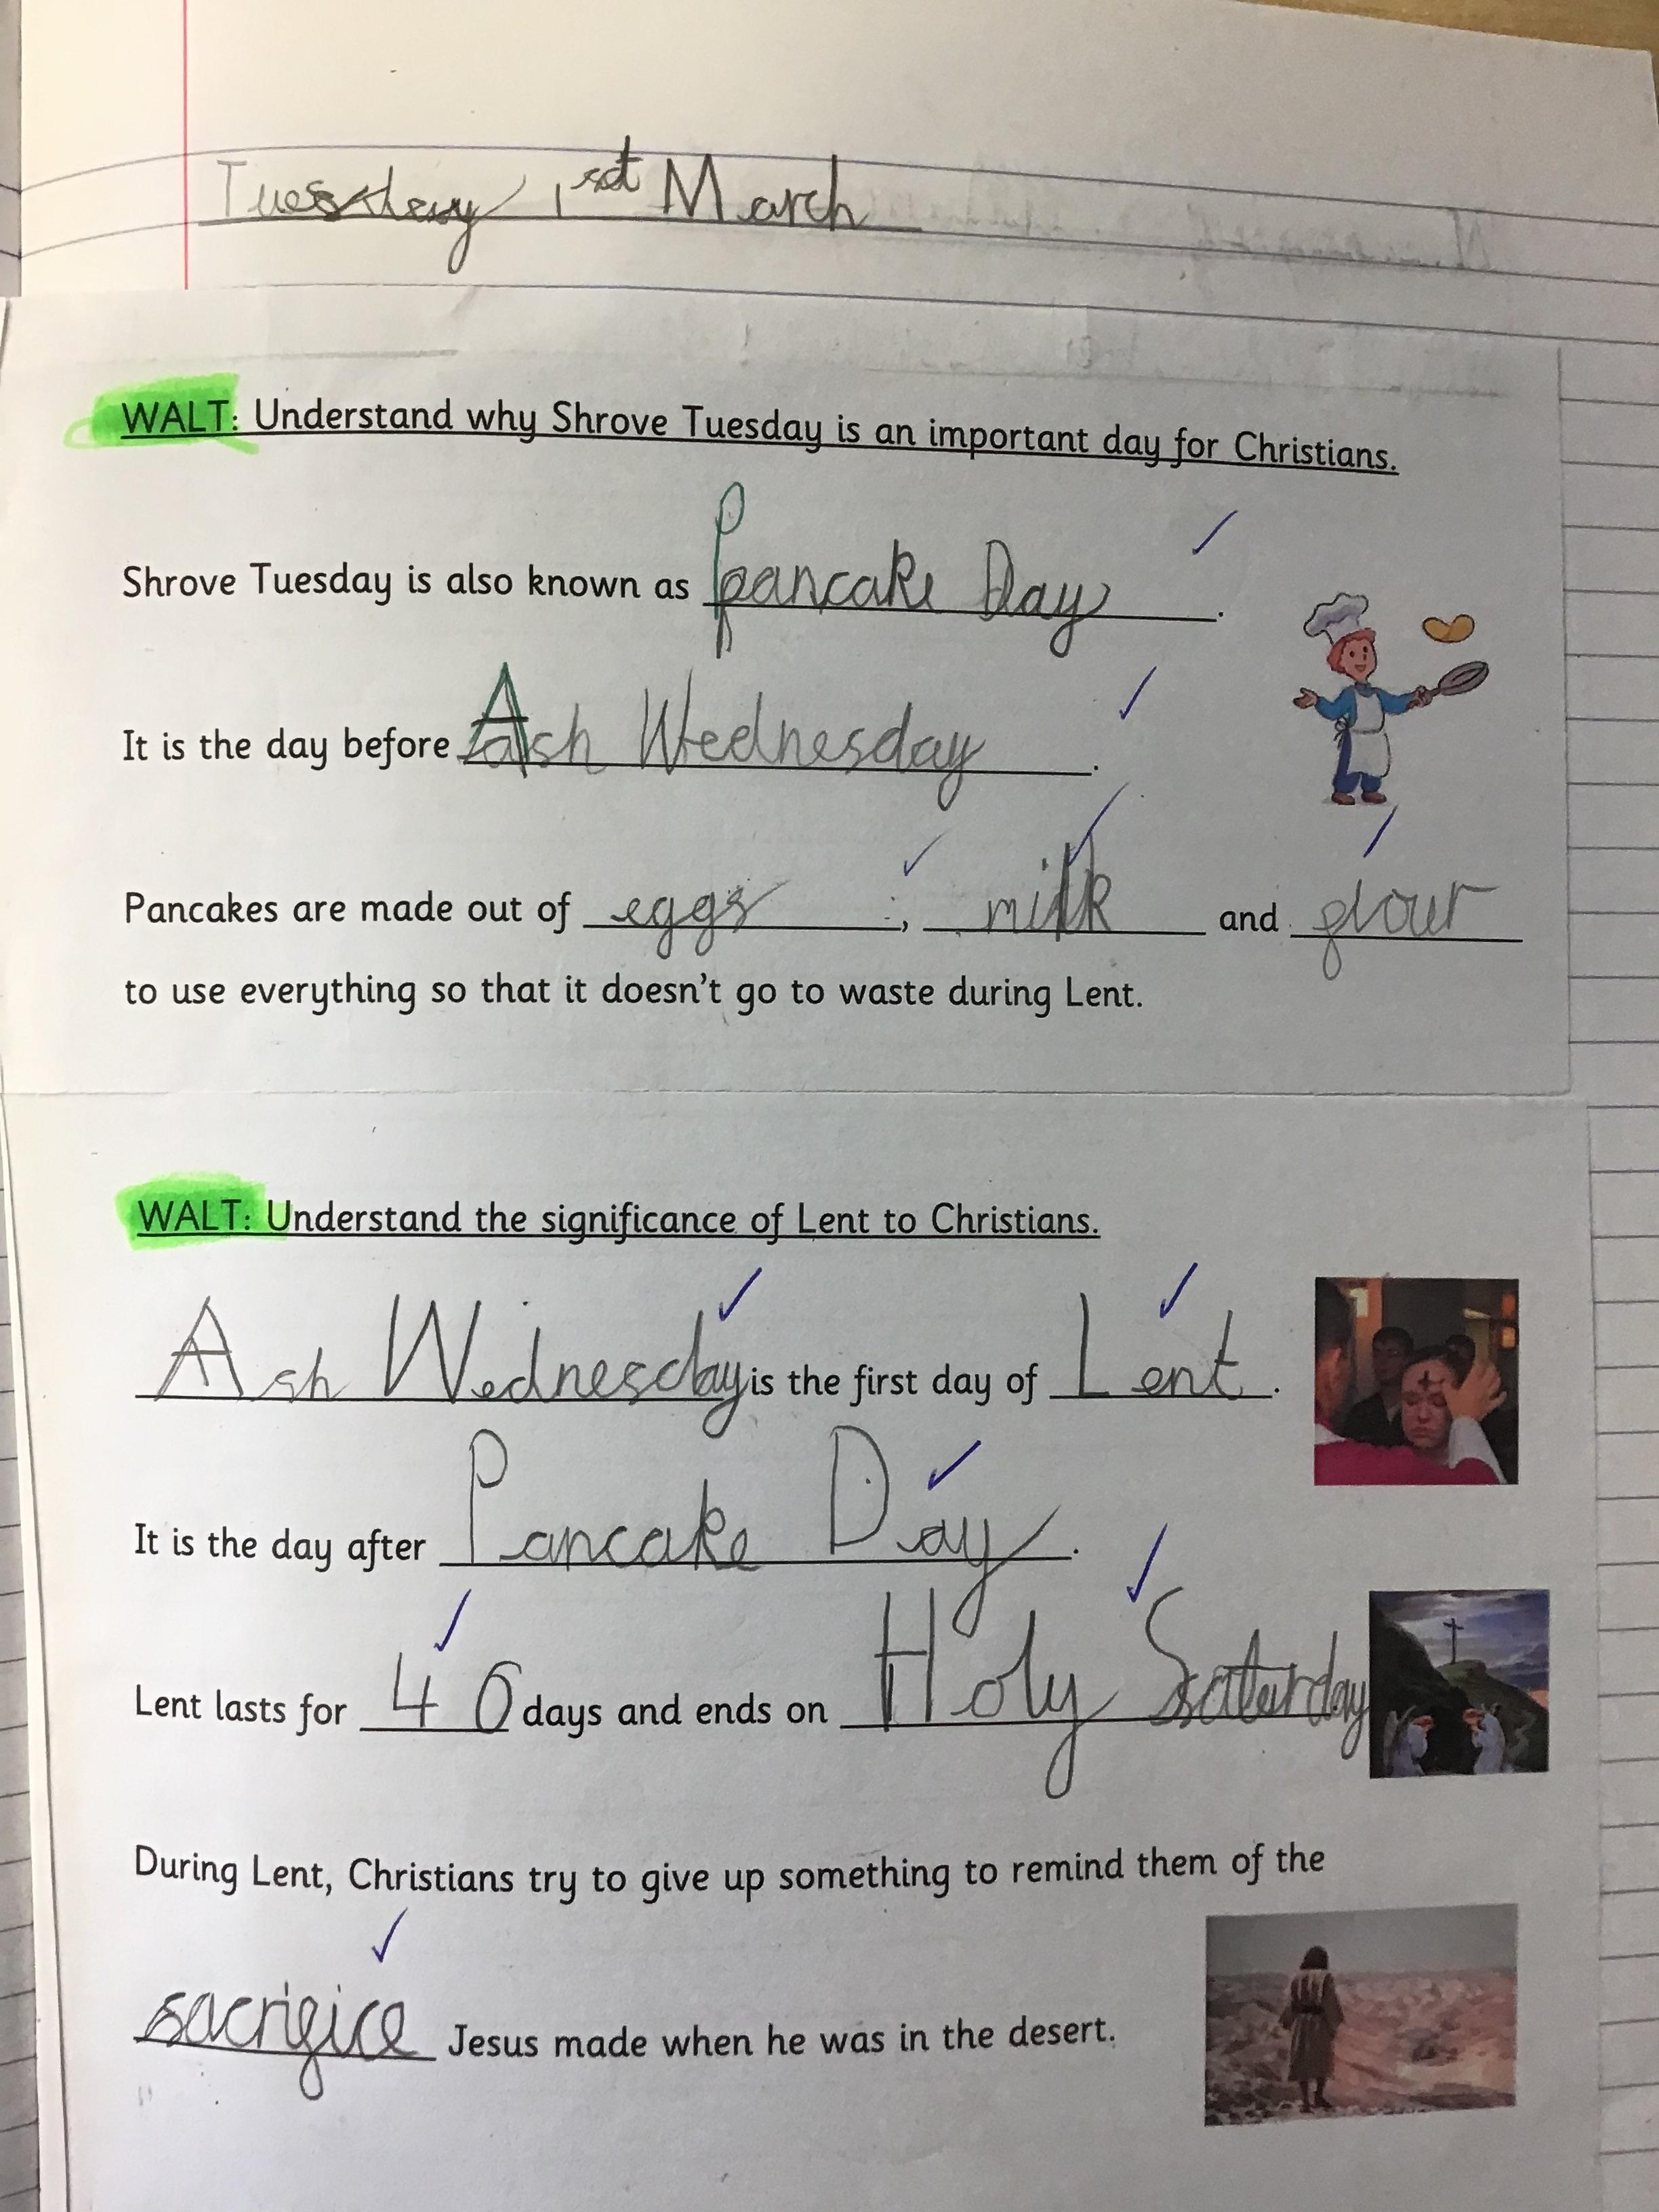 Tuesday 1st March
WALT: Understand why Shrove Tuesday is an important day for Christians.
Shrove Tuesday is also known as Pancake Day.
It is the day before Ash Wednesday.
Pancakes are made out of eggs, milk and flour
to use everything so that it doesn't go to waste during Lent.
WALT: Understand the significance of Lent to Christians.
Ash Wednesday is the first day of Lent.
It is the day after Pancake Day.
Lent lasts for 40 days and ends on Holy Saturday
During Lent, Christians try to give up something to remind them of the
sacrifice Jesus made when he was in the desert.